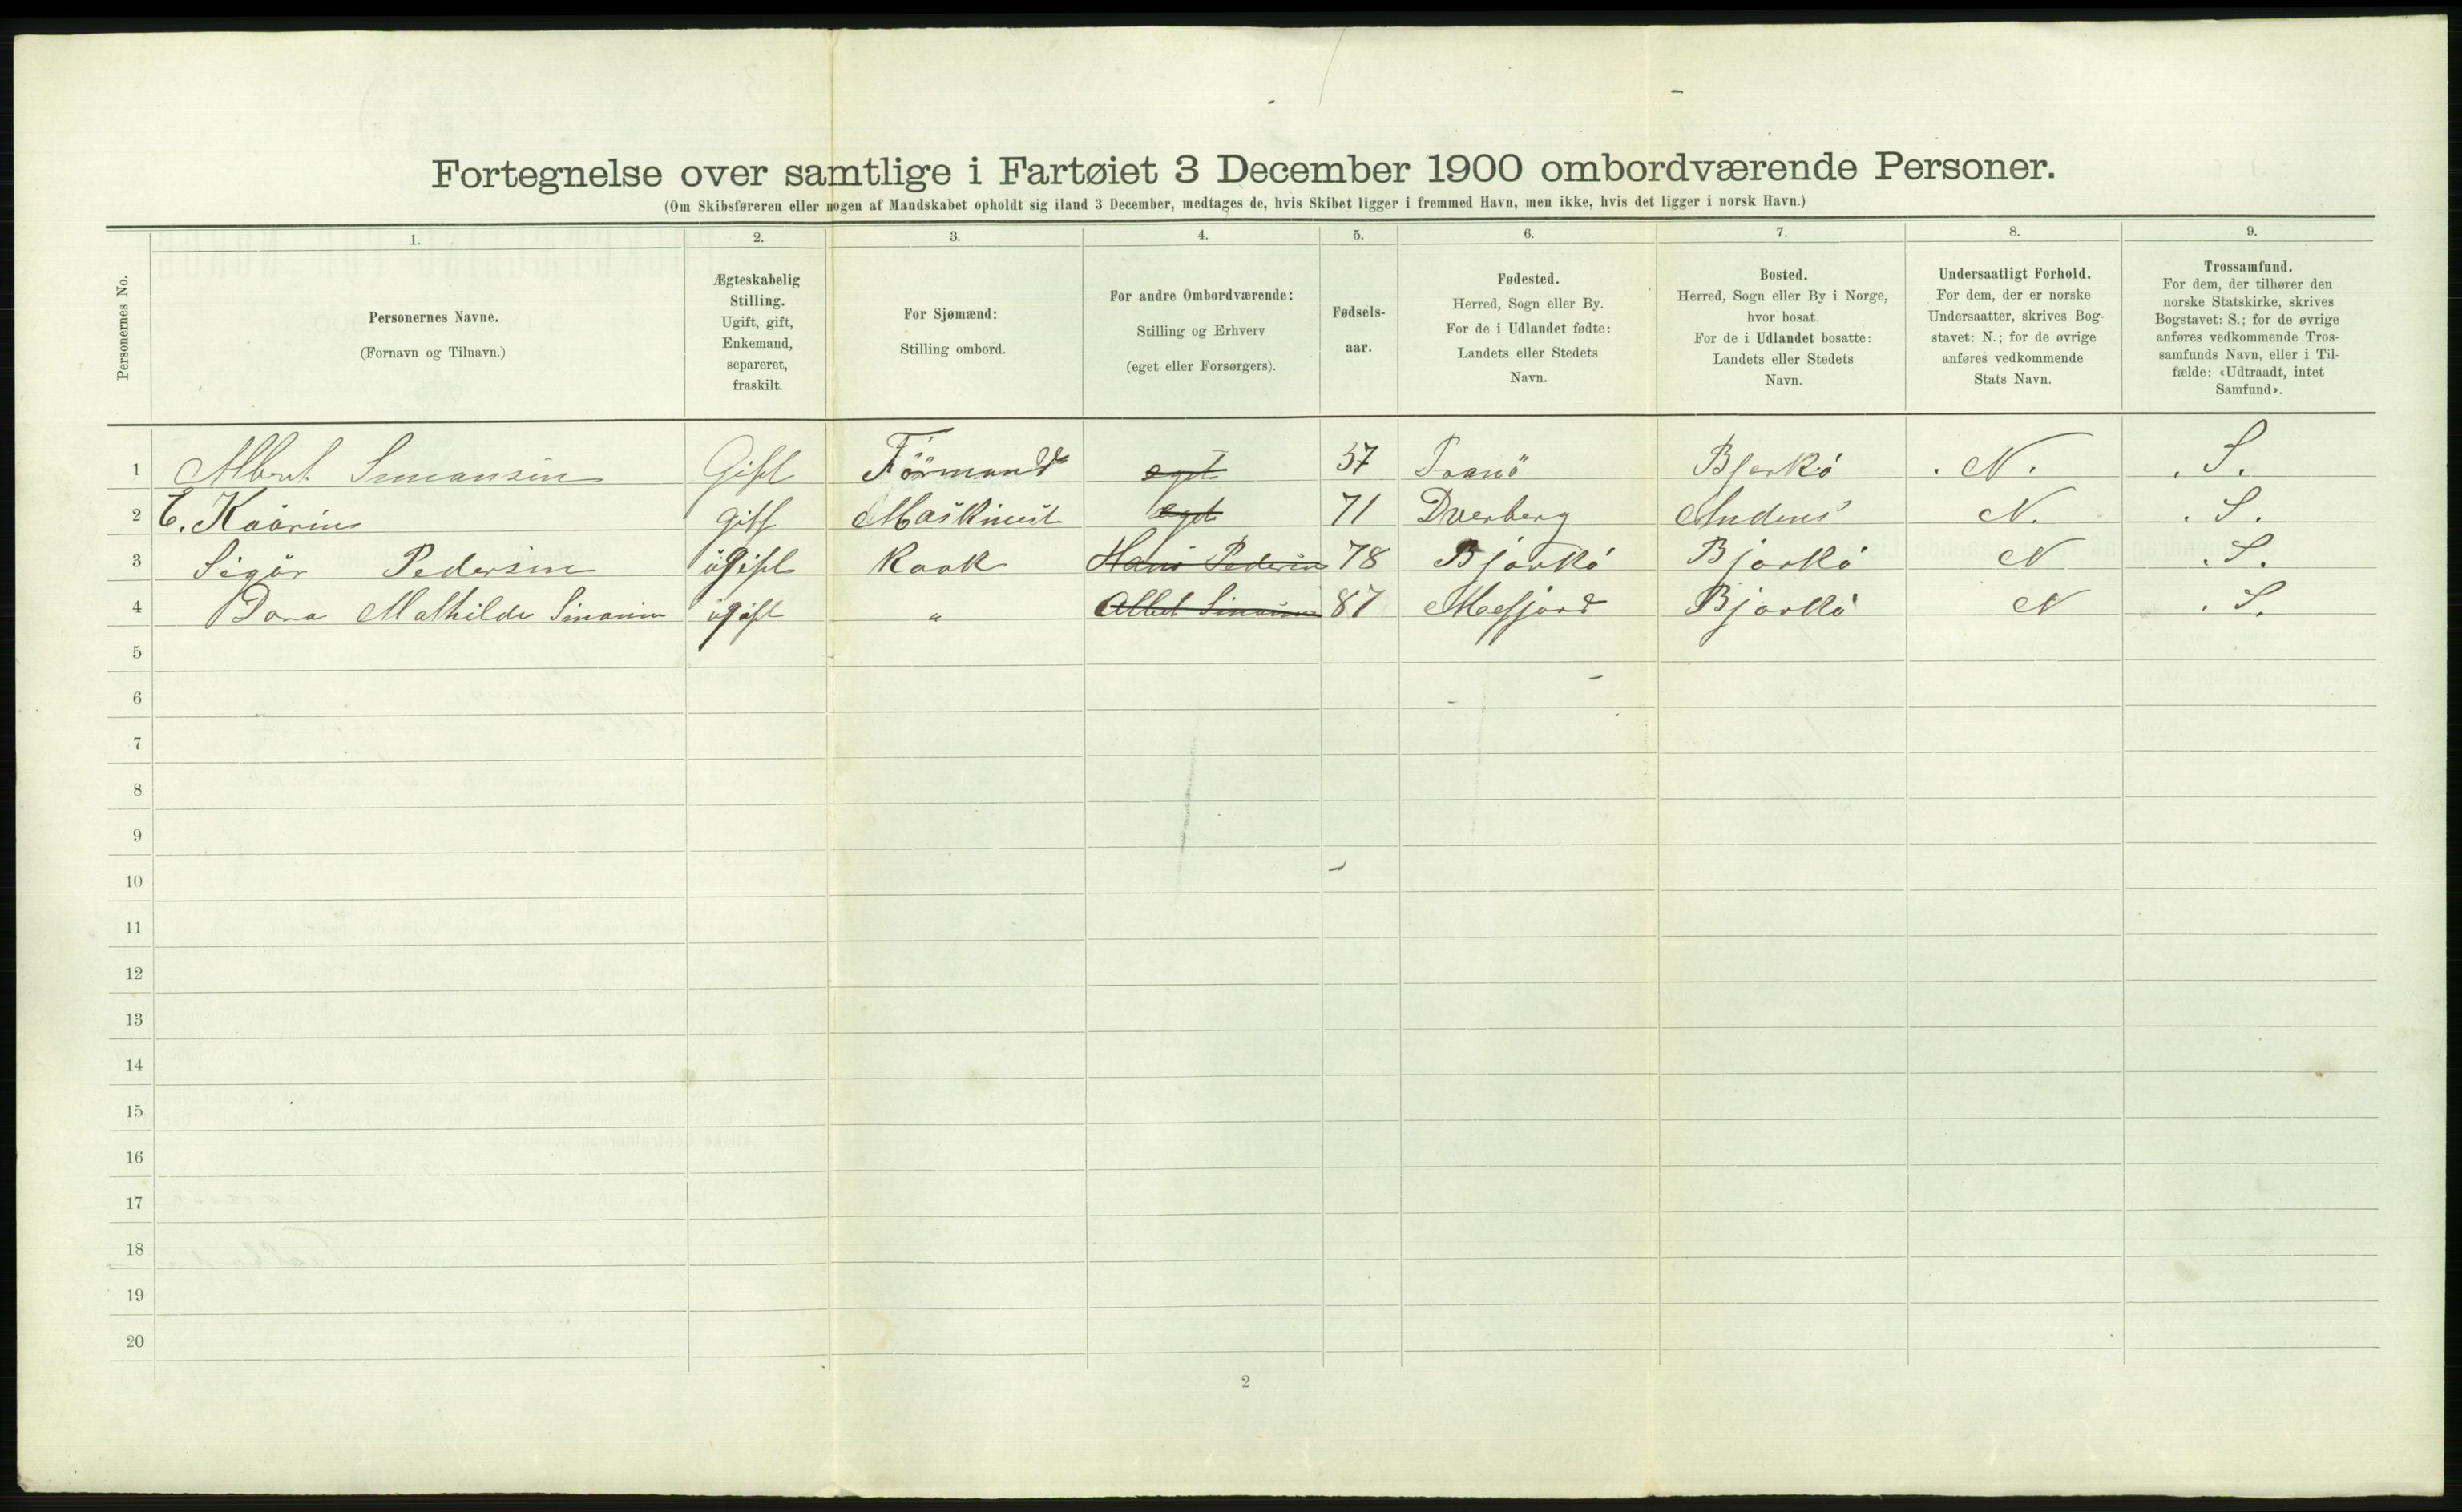 Fortegnelse over samtlige i Fartøiet 3 December 1900 ombordværende Personer.
(Om Skibsføreren eller nogen af Mandskabet opholdt sig iland 3 December, medtages de, hvis Skibet ligger i fremmed Havn, men ikke, hvis det ligger i norsk Havn.)
Personernes No.
1.
Personernes Navne.
(Fornavn og Tilnavn.)
2.
Ægteskabelig
Stilling.
Ugift, gift,
Enkemand,
separeret,
fraskilt.
3.
For Sjømænd:
Stilling ombord.
4.
For andre Ombordværende:
Stilling og Erhverv
(eget eller Forsørgers).
5.
Fødsels-
aar.
6.
Fødested.
Herred, Sogn eller By.
For de i Udlandet fødte:
Landets eller Stedets
Navn.
7.
Bosted.
Herred, Sogn eller By i Norge,
hvor bosat.
For de i Udlandet bosatte:
Landets eller Stedets
Navn.
8.
Undersaatligt Forhold.
For dem, der er norske
Undersaatter, skrives Bog-
stavet: N.; for de øvrige
anføres vedkommende
Stats Navn.
9.
Trossamfund.
For dem, der tilhører den
norske Statskirke, skrives
Bogstavet: S.; for de øvrige
anføres vedkommende Tros-
samfunds Navn, eller i Til-
fælde: «Udtraadt, intet
Samfund».
1 Albert Simansen Gift Formand eget 57 Tranö Bjarkö N. S.
2 E. Kaarin gift Maskinist eget 71 Dverberg Andenes N. S.
3 Sigör Pedersen ugift Kook Hans Pedersen 78 Bjarkö Bjarkö N S.
4 Dora Mathilde Simansen ugift " Albert Simansen 87 Mefjord Bjarkö N S.
5
6
7
8
9
10
11
12
13
14
15
16
17
18
19
20
2